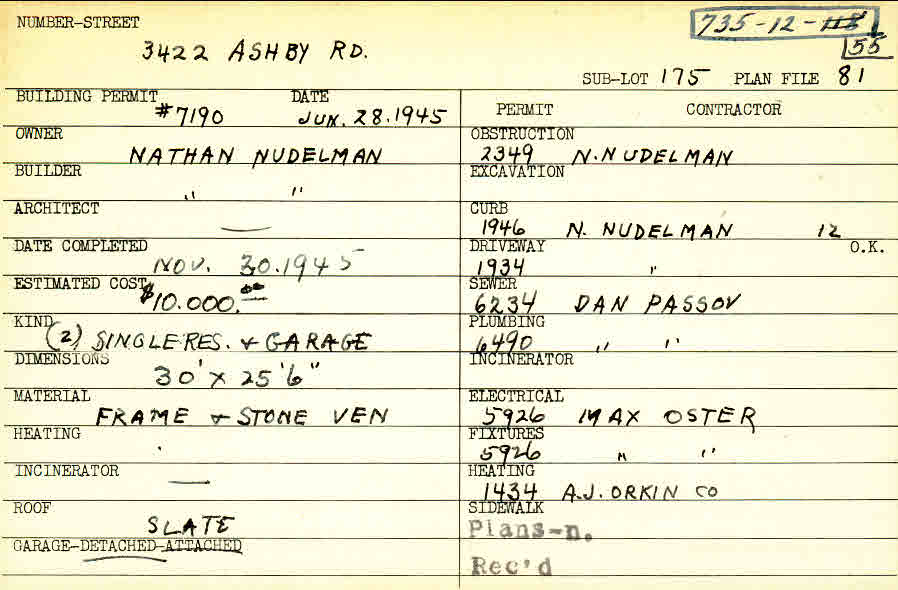 NUMBER-STREET
735-12-118
55
3422 ASHBY RD.
SUB-LOT 175 PLAN FILE 81
BUILDING PERMIT DATE
#7190 JUN. 28.1945
OWNER
NATHAN NUDELMAN
BUILDER
" "
ARCHITECT
—
DATE COMPLETED
NOV. 30.1945
ESTIMATED COST
$10.000.00
KIND
(2) SINGLE RES. & GARAGE
DIMENSIONS
30' x 25'6"
MATERIAL
FRAME & STONE VEN
HEATING
INCINERATOR
—
ROOF
SLATE
GARAGE-DETACHED-ATTACHED
PERMIT CONTRACTOR
OBSTRUCTION
2349 N. NUDELMAN
EXCAVATION
CURB
1946 N. NUDELMAN 12
DRIVEWAY O.K.
1934 "
SEWER
6234 DAN PASSOV
PLUMBING
6490 " "
INCINERATOR
ELECTRICAL
5926 MAX OSTER
FIXTURES
5926 " "
HEATING
1434 A.J. ORKIN CO
SIDEWALK
Plans-n.
Rec'd